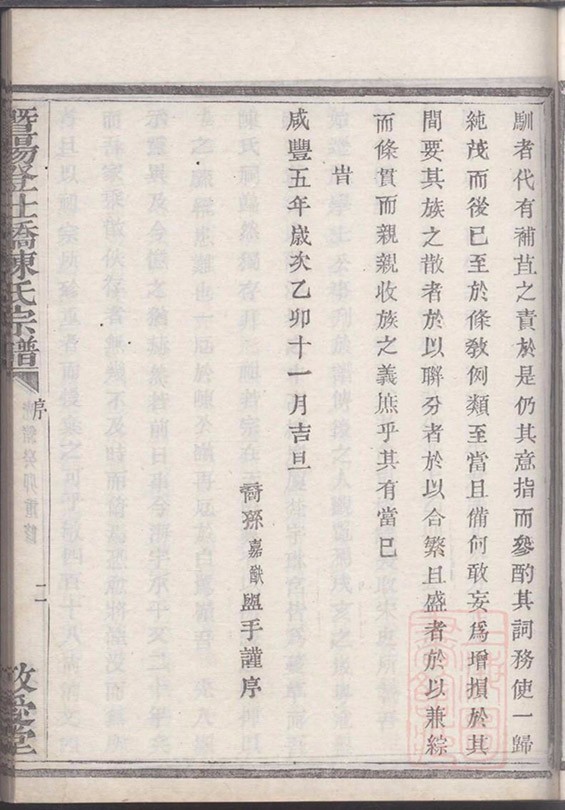 馴者代有補苴之責於是仍其意指而參酌其詞務使一歸
純茂而後已至於條教例類至當且備何敢妄為增損於其
間要其族之散者於以聯分者於以合繁且盛者於以兼綜
而條貫而親親收族之義庶乎其有當已
旹
咸豐五年歲次乙卯十一月吉旦
裔孫嘉猷盥手謹序
暨陽登仕橋陳氏宗譜
序
二
敬愛堂